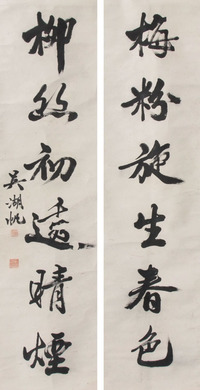 梅粉旋生春色
柳絲初透晴煙
吳湖帆